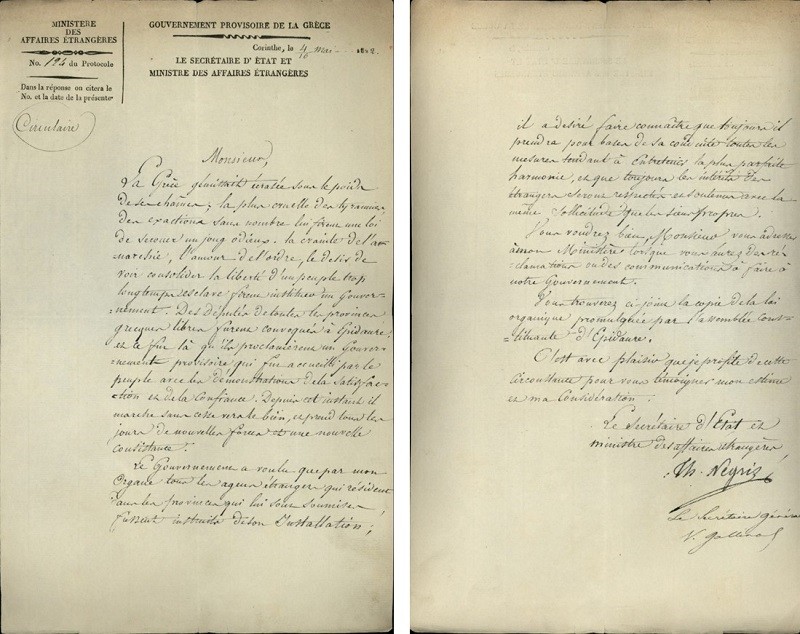 MINISTERE
DES
AFFAIRES ÉTRANGÈRES
No. 124 du Protocole
Dans la réponse on citera le
No. et la date de la présente
Circulaire
GOUVERNEMENT PROVISOIRE DE LA GRÈCE
Corinthe, le 4/16 Mai 1822.
LE SECRÉTAIRE D' ÉTAT ET
MINISTRE DES AFFAIRES ÉTRANGÈRES
Monsieur,
La Grèce gémissait écrasée sous le poids
de ses chaines; la plus cruelle des tyrannies
des exactions sans nombre lui firent une loi
de secouer un joug odieux. la crainte de l'a=
narchie, l'amour de l'ordre, le desir de
voir consolider la liberté d'un peuple trop
longtemps esclave firent instituer un Gouver=
=nement. Des députés de toutes les provinces
grecques libres furent convoqués à Epidaure;
et ce fut là qu'ils proclamèrent un Gouver=
=nement provisoire qui fut accueilli par le
peuple avec les démonstrations de la satisfac=
=tion et de la Confiance. Depuis cet instant il
marche sans cesse vers le bien, et prend tous les
jours de nouvelles forces et une nouvelle
consistance.
Le Gouvernement a voulu que par mon
Organe tous les agens étrangers qui résident
dans les provinces qui lui sont soumises
fussent instruits de son Installation;
il a desiré faire connaître que toujours il
prendra pour bases de sa conduite toutes les
mesures tendant à entretenir la plus parfaite
harmonie, et que toujours les intérêts des
étrangers seront respectés et soutenus avec la
même sollicitude que les siens propres.
Vous voudrez bien, Monsieur vous adresser
à mon Ministère lorsque vous aurez des ré=
clamations ou des communications à faire à
notre Gouvernement.
Vous trouverez ci-joint la copie de la loi
organique promulguée par l'assemblée Cons=
=tituante d'Epidaure.
C'est avec plaisir que je profite de cette
circonstance pour vous témoigner mon estime
et ma considération.
Le Secrétaire d'Etat et
ministre des affaires étrangères
Th. Negris
Le Secrétaire général
V.